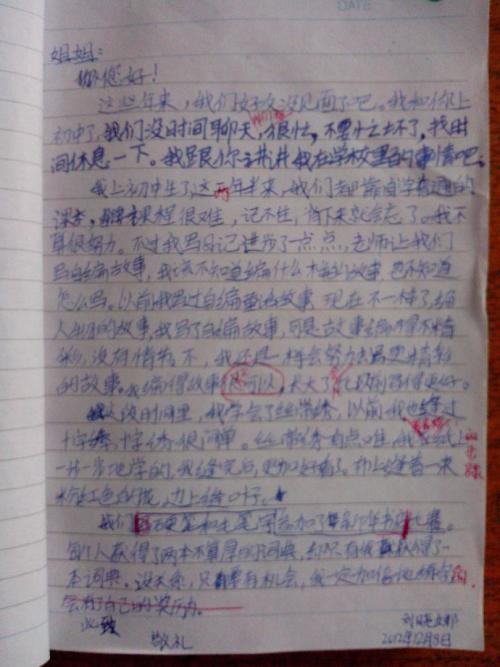 DATE
姐姐:
您好!
这些年来,我们好久没见面了吧。我和你上
初中了,我们没时间聊天,很忙,不要忙坏了,找时
间休息一下。我跟你讲讲我在学校里的事情吧。
我上初中生了,这两年半来,我们都靠自学普通的
课本,课程很难,记不住,背下来就会忘了。我不
算很努力。不过我写日记进步了一点点,老师让我们
写自编故事,我该不知道编什么样的故事,也不知道
怎么写。以前我写过自编童话故事,现在不一样了,编
人物的故事,我写了自编故事,可是故事编得不精
彩,没有情节,不,我还是一样会努力去写更精彩
的故事。我编得故事很可以,大大了
没时间里,我学会了丝带绣,以前我也绣过
十字绣,十字绣很简单。丝带绣有点难,我
一步一步地学的,我缝完后,更加好看了。布上缝着一束
粉红色玫瑰,边上缝叶子。
我们
每个人获得了两本不算厚的词典,却只有我获得了一
本词典。没关系,只要有机会,我一定加倍地练字
会有了自己的奖历
此致
敬礼
2012年12月9日